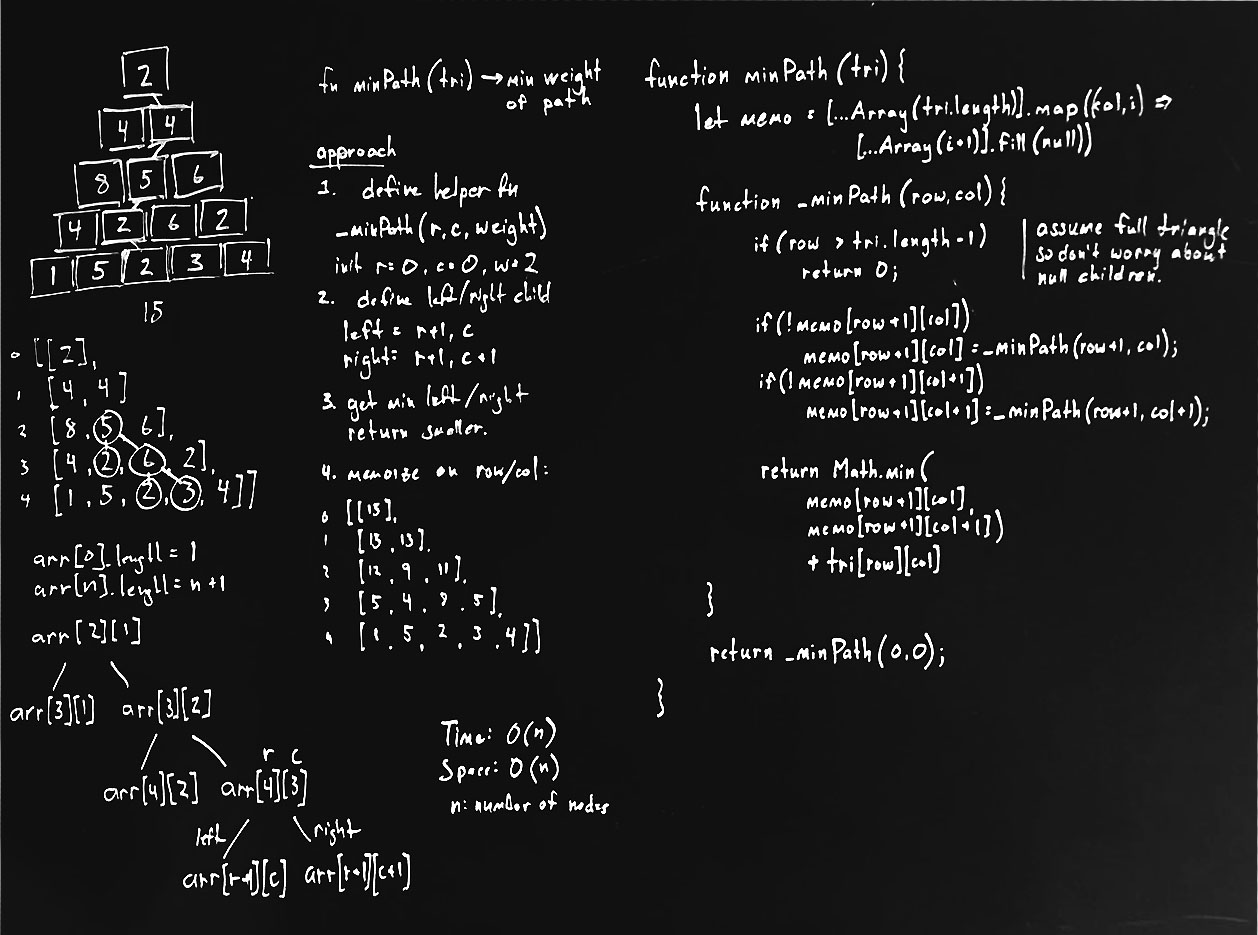 2
4 4
8 5 6
4 2 6 2
1 5 2 3 4
15
0 [[2],
1 [4, 4]
2 [8, 5, 6],
3 [4, 2, 6, 2],
4 [1, 5, 2, 3, 4]]
arr[0].length = 1
arr[n].length = n+1
arr[2][1]
arr[3][1] arr[3][2]
r c
arr[4][2] arr[4][3]
left right
arr[r+1][c] arr[r+1][c+1]
fn minPath(tri) → min weight
of path
approach
1. define helper fn
_minPath(r, c, weight)
init r=0, c=0, w=2
2. define left/right child
left = r+1, c
right= r+1, c+1
3. get min left/right
return smaller.
4. memoize on row/col:
0 [[15],
1 [13, 13],
2 [12, 9, 11],
3 [5, 4, 8, 5],
4 [1, 5, 2, 3, 4]]
Time: O(n)
Space: O(n)
n: number of nodes
function minPath(tri) {
let memo = [...Array(tri.length)].map((col,i) =>
[...Array(i+1)].fill(null))
function _minPath(row,col) {
if(row > tri.length-1)
return 0;
assume full triangle
so don't worry about
null children.
if(!memo[row+1][col])
memo[row+1][col] = _minPath(row+1, col);
if(!memo[row+1][col+1])
memo[row+1][col+1] = _minPath(row+1, col+1);
return Math.min(
memo[row+1][col],
memo[row+1][col+1])
+ tri[row][col]
}
return _minPath(0,0);
}